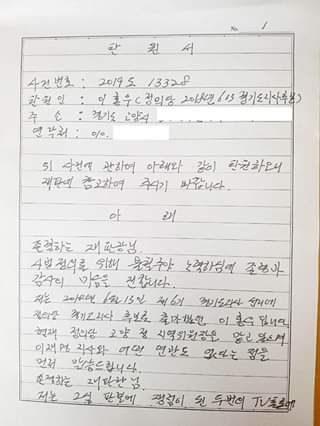 No. 1
탄 원 서
사건번호 : 2019도 13328
탄원인 : 이홍우(정의당 2018년 6.13 경기도지사후보)
주 소 : 경기도 고양시
연락처 : 010.
위 사건에 관하여 아래와 같이 탄원하오니
재판에 참고하여 주시기 바랍니다.
아 래
존경하는 재판관님.
사법정의를 위해 불철주야 노력하심에 존경과
감사의 마음을 전합니다.
저는 2018년 6월 13일 제 경기도지사 선거에
정의당 경기도지사 후보로 출마했던 이홍우입니다.
현재 정의당 고양 정 지역위원장을 맡고 있으며
이재명 지사와 어떤 연관도 없다는 점을
먼저 말씀드립니다.
존경하는 재판관님.
저는 2심 판결에 쟁점이 된 두번의 TV토론에